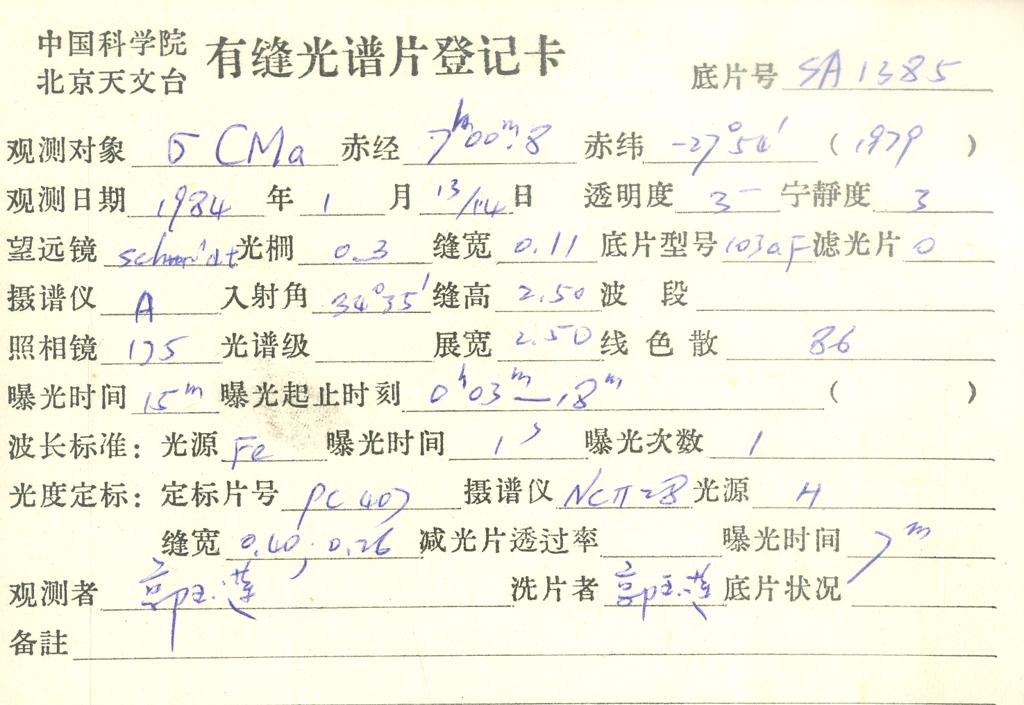 中国科学院
北京天文台
有缝光谱片登记卡
底片号 SA1385
观测对象 σ CMa 赤经 7ʰ00ᵐ.8 赤纬 -27°54′ (1979)
观测日期 1984 年 1 月 13/14 日 透明度 3⁻ 宁静度 3
望远镜 schmidt 光栅 0.3 缝宽 0.11 底片型号 103aF 滤光片 0
摄谱仪 A 入射角 34°35′ 缝高 2.50 波段
照相镜 175 光谱级 展宽 2.50 线色散 86
曝光时间 15ᵐ 曝光起止时刻 0ʰ03ᵐ—18ᵐ ( )
波长标准: 光源 Fe 曝光时间 1ˢ 曝光次数 1
光度定标: 定标片号 PC407 摄谱仪 光源 H
缝宽 0.40, 0.26 减光片透过率 曝光时间 7ᵐ
观测者 郭玉莲 洗片者 郭玉莲 底片状况
备註